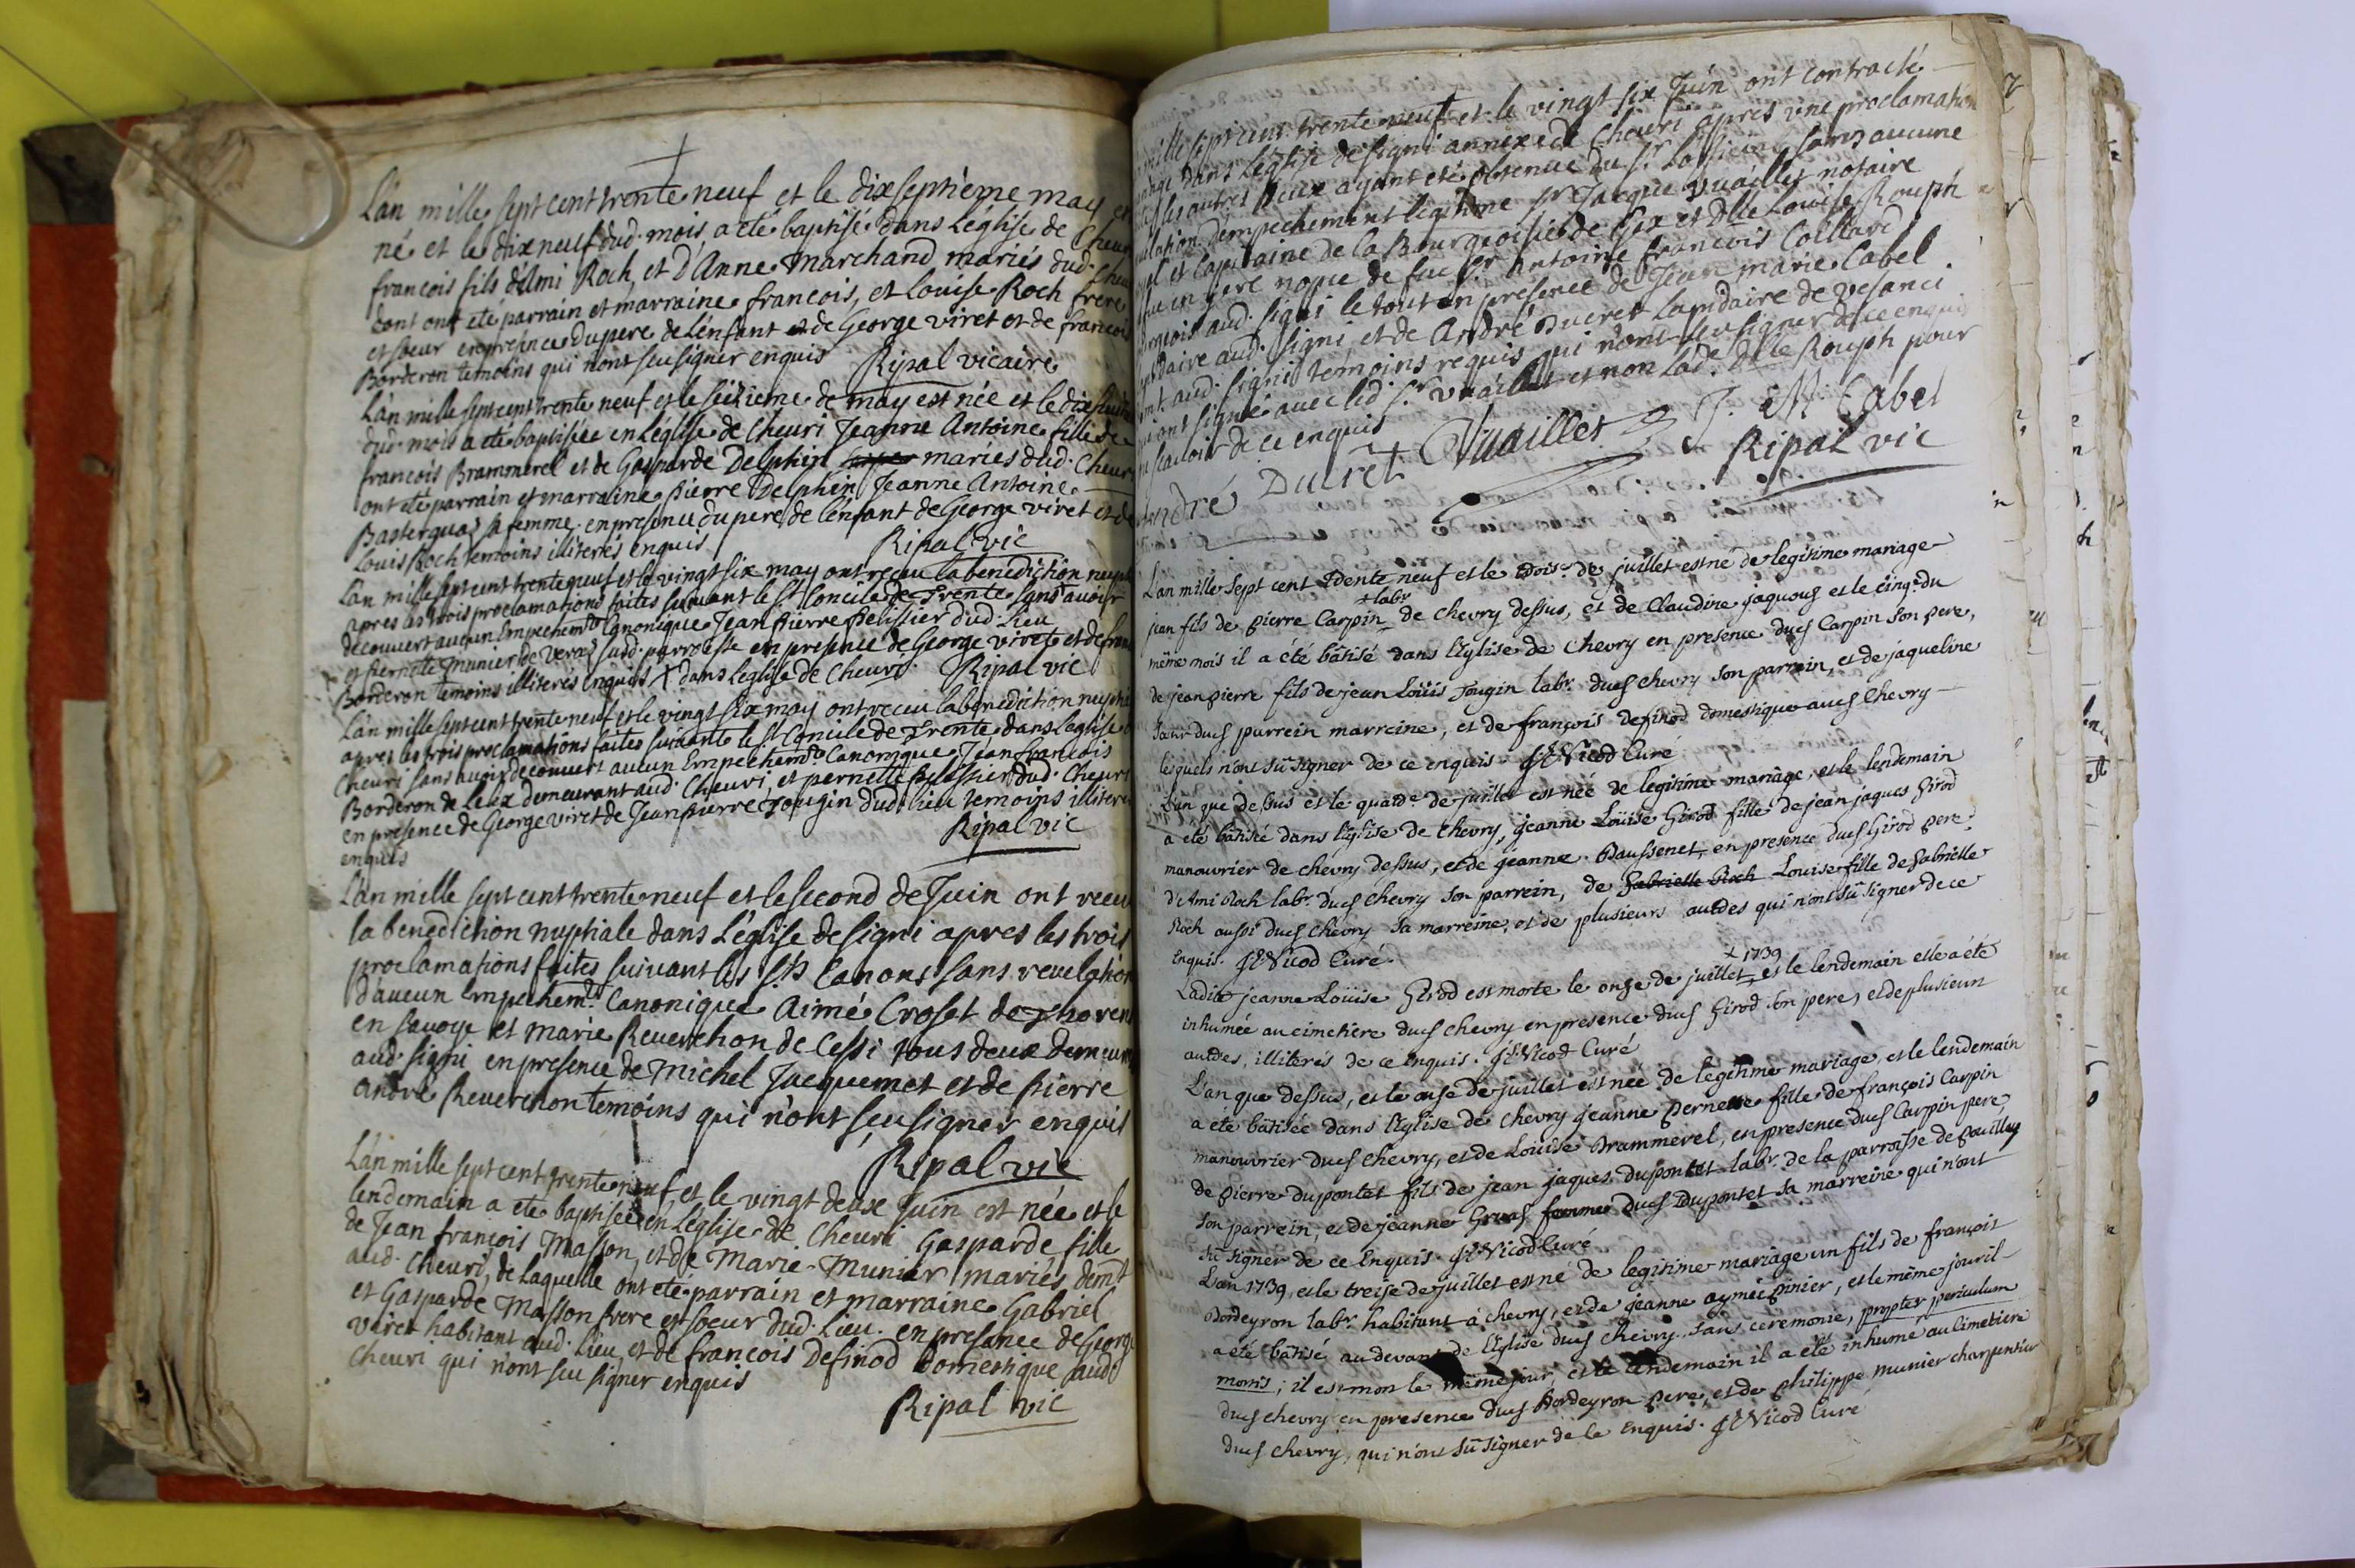 L'an mille sept cent trente neuf et le dixseptieme may
né et le dixneuf dud. mois a eté baptisé dans L'église de Cheuri
francois fils d'Ami Roch, et D'Anne Marchand mariés dud.
dont ont eté parrain et marraine francois, et Louise Roch frere
et soeur en presence du pere de l'enfant et de George viret et de francois
Borderon temoins qui n'ont seu signer enquis Ripal vicaire
L'an mille sept cent trente neuf et le seizieme de may est née et le
dud. mois a eté baptisée en L'eglise de Cheuri Jeanne Antoine fille de
francois Brammerel et de Gasparde Delphin mariés dud. Cheuri
ont eté parrain et marraine Pierre Delphin Jeanne Antoine
sa femme en presence du pere de l'enfant de George viret et de
Louis Roch temoins illiterés enquis Ripal vic
L'an mille sept cent trente neuf et le vingt six may ont receu la benediction
apres les trois proclamations faites suivant le St Concile de Trente sans avoir
decouvert aucun Empechemt Canonique Jean Pierre Pelissier dud. Lieu
et Pernete Munier de Veraz sudd. parroisse en presence de George viret et de
Borderon temoins illiterés enquis + dans leglise de Cheuri. Ripal vic
L'an mille sept cent trente neuf et le vingt six may ont receu la benediction
apres les trois proclamations faites suivant le St Concile de Trente dans L'eglise
Cheuri sans avoir decouvert aucun Empechemt Canonique Jean francois
Borderon de demeurant aud. Cheuri, et pernette Pelissier dud. Cheuri
en presence de George viret de Jean pierre Tougin dud. lieu temoins illiterés
enquis Ripal vic
L'an mille sept cent trente neuf et le second de Juin ont receu
la benediction nuptiale dans L'église de signi apres les trois
proclamations faites suivant les Sts Canons sans revelation
D'aucun Empechemt Canonique Aimé Croset de Thorens
en savoye et Marie Reverchon de Cessi tous deux
aud. signi en presence de Michel Jacquemet et de Pierre
André Reverchon temoins qui n'ont seu signer enquis
Ripal vic
L'an mille sept cent trente neuf, et le vingt deux Juin est née et le
lendemain a eté baptisée en L'église de Cheuri Gasparde fille
de Jean francois Masson, et de Marie Munier mariés demt
aud. Cheuri, de Laquelle ont eté parrain et marraine Gabriel
et Gasparde Masson frere et soeur dud. Lieu. en presence de George
viret habitant aud. lieu, et de francois Definod Domestique aud.
Cheuri qui n'ont seu signer enquis
Ripal vic
mille sept cent trente neuf et le vingt six Juin ont contracté
dans L'église de signi annexe de Cheuri apres une proclamation
les autres deux ayant eté obtenue du Sr sans aucune
D'empechement legitime Sr Jacque Vuaillet notaire
et Capitaine de la Bourgeoisie de Gex et Dlle Louise Rouph
de feu Sr Antoine francois Colliard
aud. signi le tout en presence de Jean marie Cabel
aud. signi et de André Ducret Lapidaire de vesanci
aud. signi temoins requis qui n'ont seu signer de ce enquis
ont signé avec led Sr Vuaillet et non lad. Dlle Rouph pour
scavoir de ce enquis Vuaillet J. M Cabel
André Ducret Ripal vic
L'an mille sept cent trente neuf et le trois de juillet est né de legitime mariage
+ labr
jean fils de pierre Carpin de chevry dessus, et de Claudine jaquous et le cinq du
même mois il a été bâtisé dans l'Eglise de Chevry en presence dud Carpin son pere,
de jean pierre fils de jean Loüis Tougin labr. dud chevry son parrein, et de jaqueline
soeur dud parrein marreine, et de françois definod domestique aud Chevry
lesquels n'ont sû signer de ce enquis. Nicod Curé
L'an que dessus et le quatre de juillet est née de legitime mariage, et le lendemain
a été bâtisée dans l'Eglise de chevry, jeanne Loüise Girod fille de jean jaques Girod
manouvrier de chevry dessus, et de jeanne Baussenet, en presence dud Girod pere,
d'Ami Roch labr. dud chevry son parrein, de Gabrielle Roch Louise fille de Gabrielle
Roch aussi dud chevry sa marreine, et de plusieurs autres qui n'ont sû signer de ce
Enquis. Nicod Curé.
+ 1739
Ladite jeanne Loüise Girod est morte le onze de juillet, et le lendemain elle a été
inhumée au cimetiere dud chevry en presence dud Girod son pere, et de plusieurs
autres, illiterés de ce enquis. Nicod Curé
L'an que dessus, et le onse de juillet est née de legitime mariage, et le lendemain
a été bâtisée dans l'Eglise de chevry jeanne Pernette fille de françois Carpin
manouvrier dud chevry, et de Loüise Brammerel, en presence dud Carpin pere,
de pierre dupontet fils de jean jaques dupontet labr. de la parroisse de pouilly
son parrein, et de jeanne femme dud Dupontet sa marreine qui n'ont
sû signer de ce Enquis. Nicod Curé
L'an 1739 et le treise de juillet est né de legitime mariage un fils de françois
Bordeyron labr. habitant à chevry, et de jeanne aymée pinier, et le même jour il
a été bâtisé au devant de l'Eglise dud chevry sans ceremonie, propter periculum
mortis; il est mort le même jour, et le lendemain il a été inhumé au Cimetiere
dud chevry en presence dud Bordeyron pere, et de philippe munier charpentier
dud chevry, qui n'ont sû signer de ce Enquis. Nicod Curé